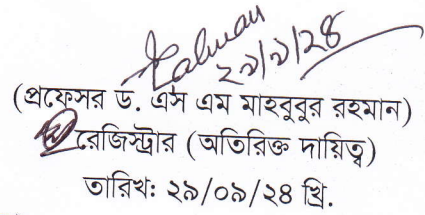 ২৯/৯/২৪
(প্রফেসর ড. এস এম মাহবুবুর রহমান)
রেজিস্ট্রার (অতিরিক্ত দায়িত্ব)
তারিখ: ২৯/০৯/২৪ খ্রি.